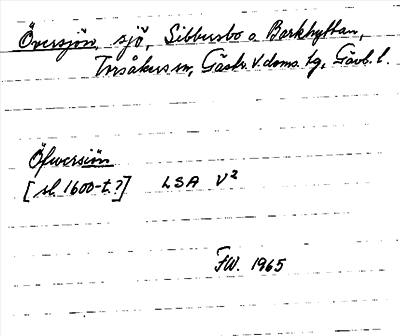 Översjön, sjö, Sibbersbo o Berkhyttan,
Torsåkers sn, Gästr. V. doms. tg, Gävl. l.
Öfwersiön
[sl. 1600-t.?] LSA V²
FW. 1965